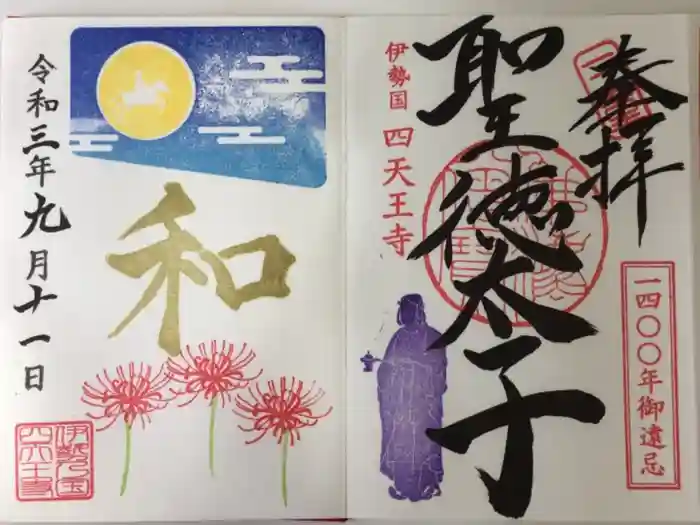 奉拝
一四〇〇年御遠忌
聖徳太子
伊勢国 四天王寺
和
令和三年九月十一日
伊勢乃国
四天王寺